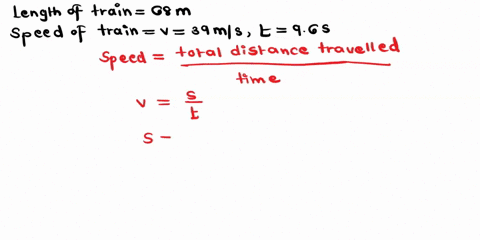 Length of train = 68 m
Speed of train = v = 39 m/s, t = 9.6 s
Speed = total distance travelled
time
v = s
t
s -